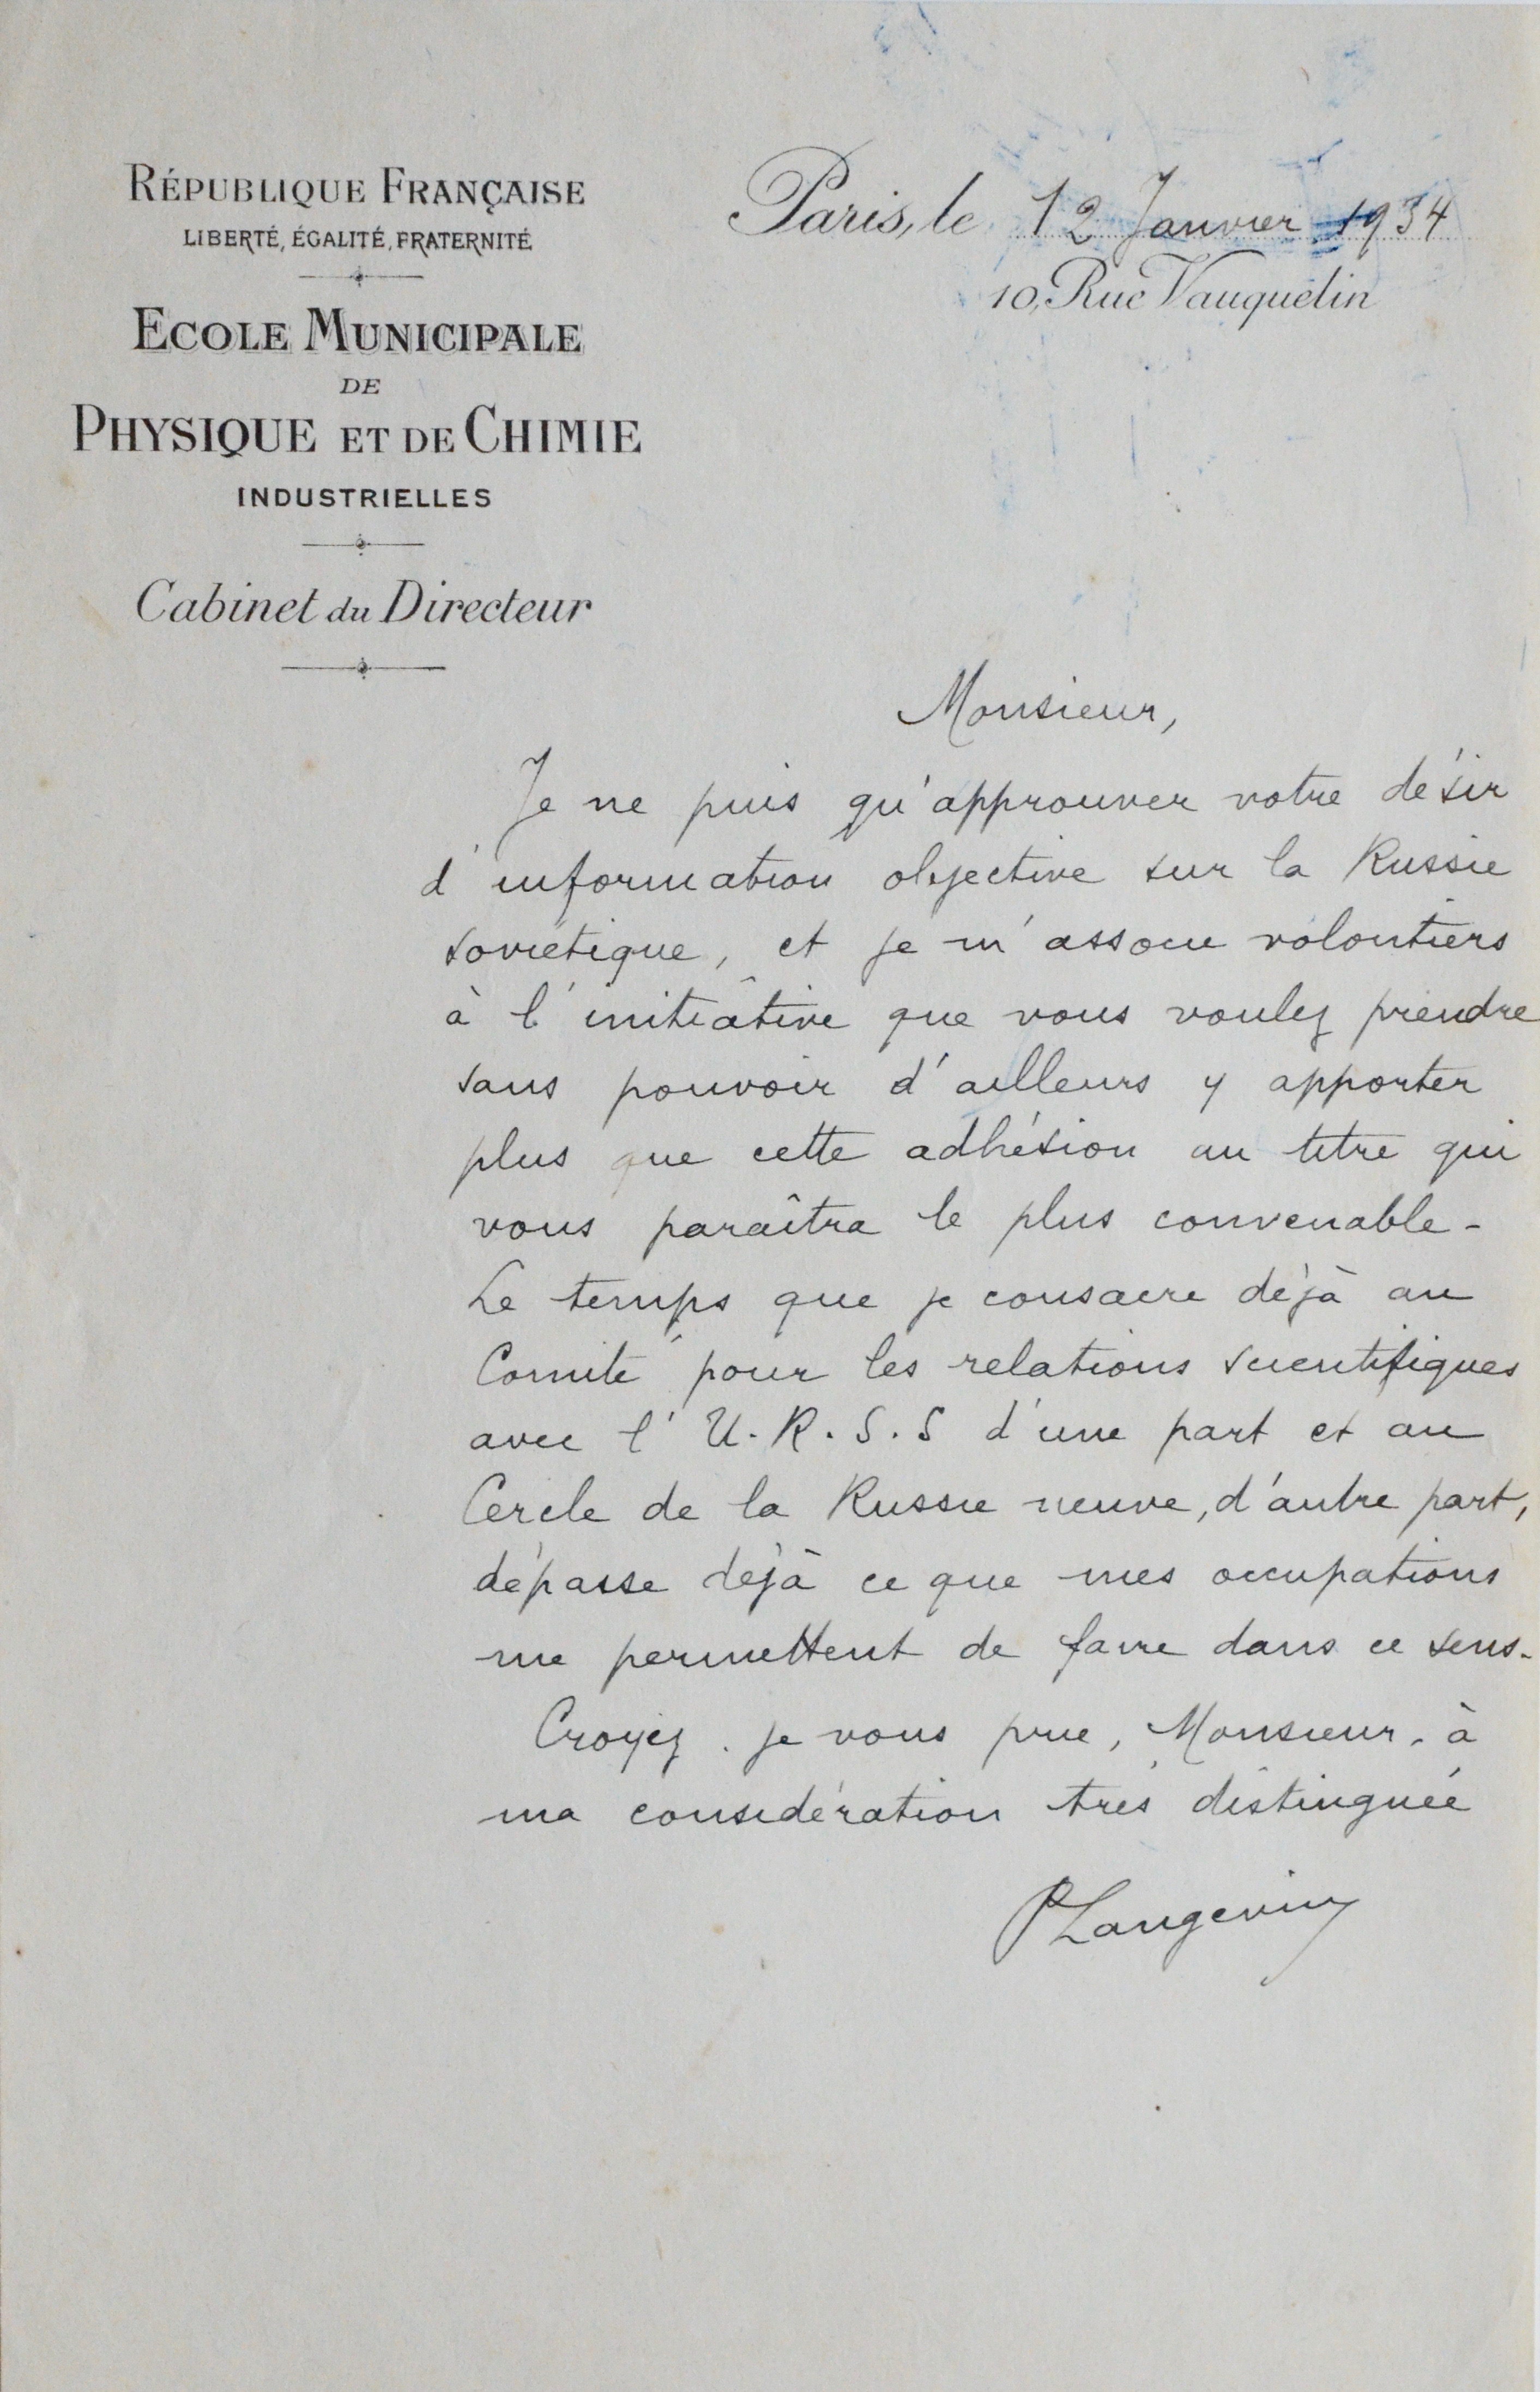 RÉPUBLIQUE FRANÇAISE
LIBERTÉ, ÉGALITÉ, FRATERNITÉ
ECOLE MUNICIPALE
DE
PHYSIQUE ET DE CHIMIE
INDUSTRIELLES
Cabinet du Directeur
Paris, le 12 Janvier 1934
10, Rue Vauquelin
Monsieur,
Je ne puis qu'approuver votre désir
d'information objective sur la Russie
soviétique, et je m'associe volontiers
à l'initiative que vous voulez prendre
sans pouvoir d'ailleurs y apporter
plus que cette adhésion au titre qui
vous paraîtra le plus convenable.
Le temps que je consacre déjà au
Comité pour les relations scientifiques
avec l'U.R.S.S d'une part et au
Cercle de la Russie neuve, d'autre part,
dépasse déjà ce que mes occupations
me permettent de faire dans ce sens.
Croyez, je vous prie, Monsieur, à
ma considération très distinguée
P Langevin